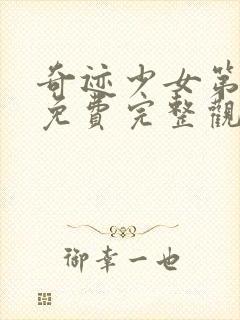 奇迹少女第
免費完整觀
御幸一也